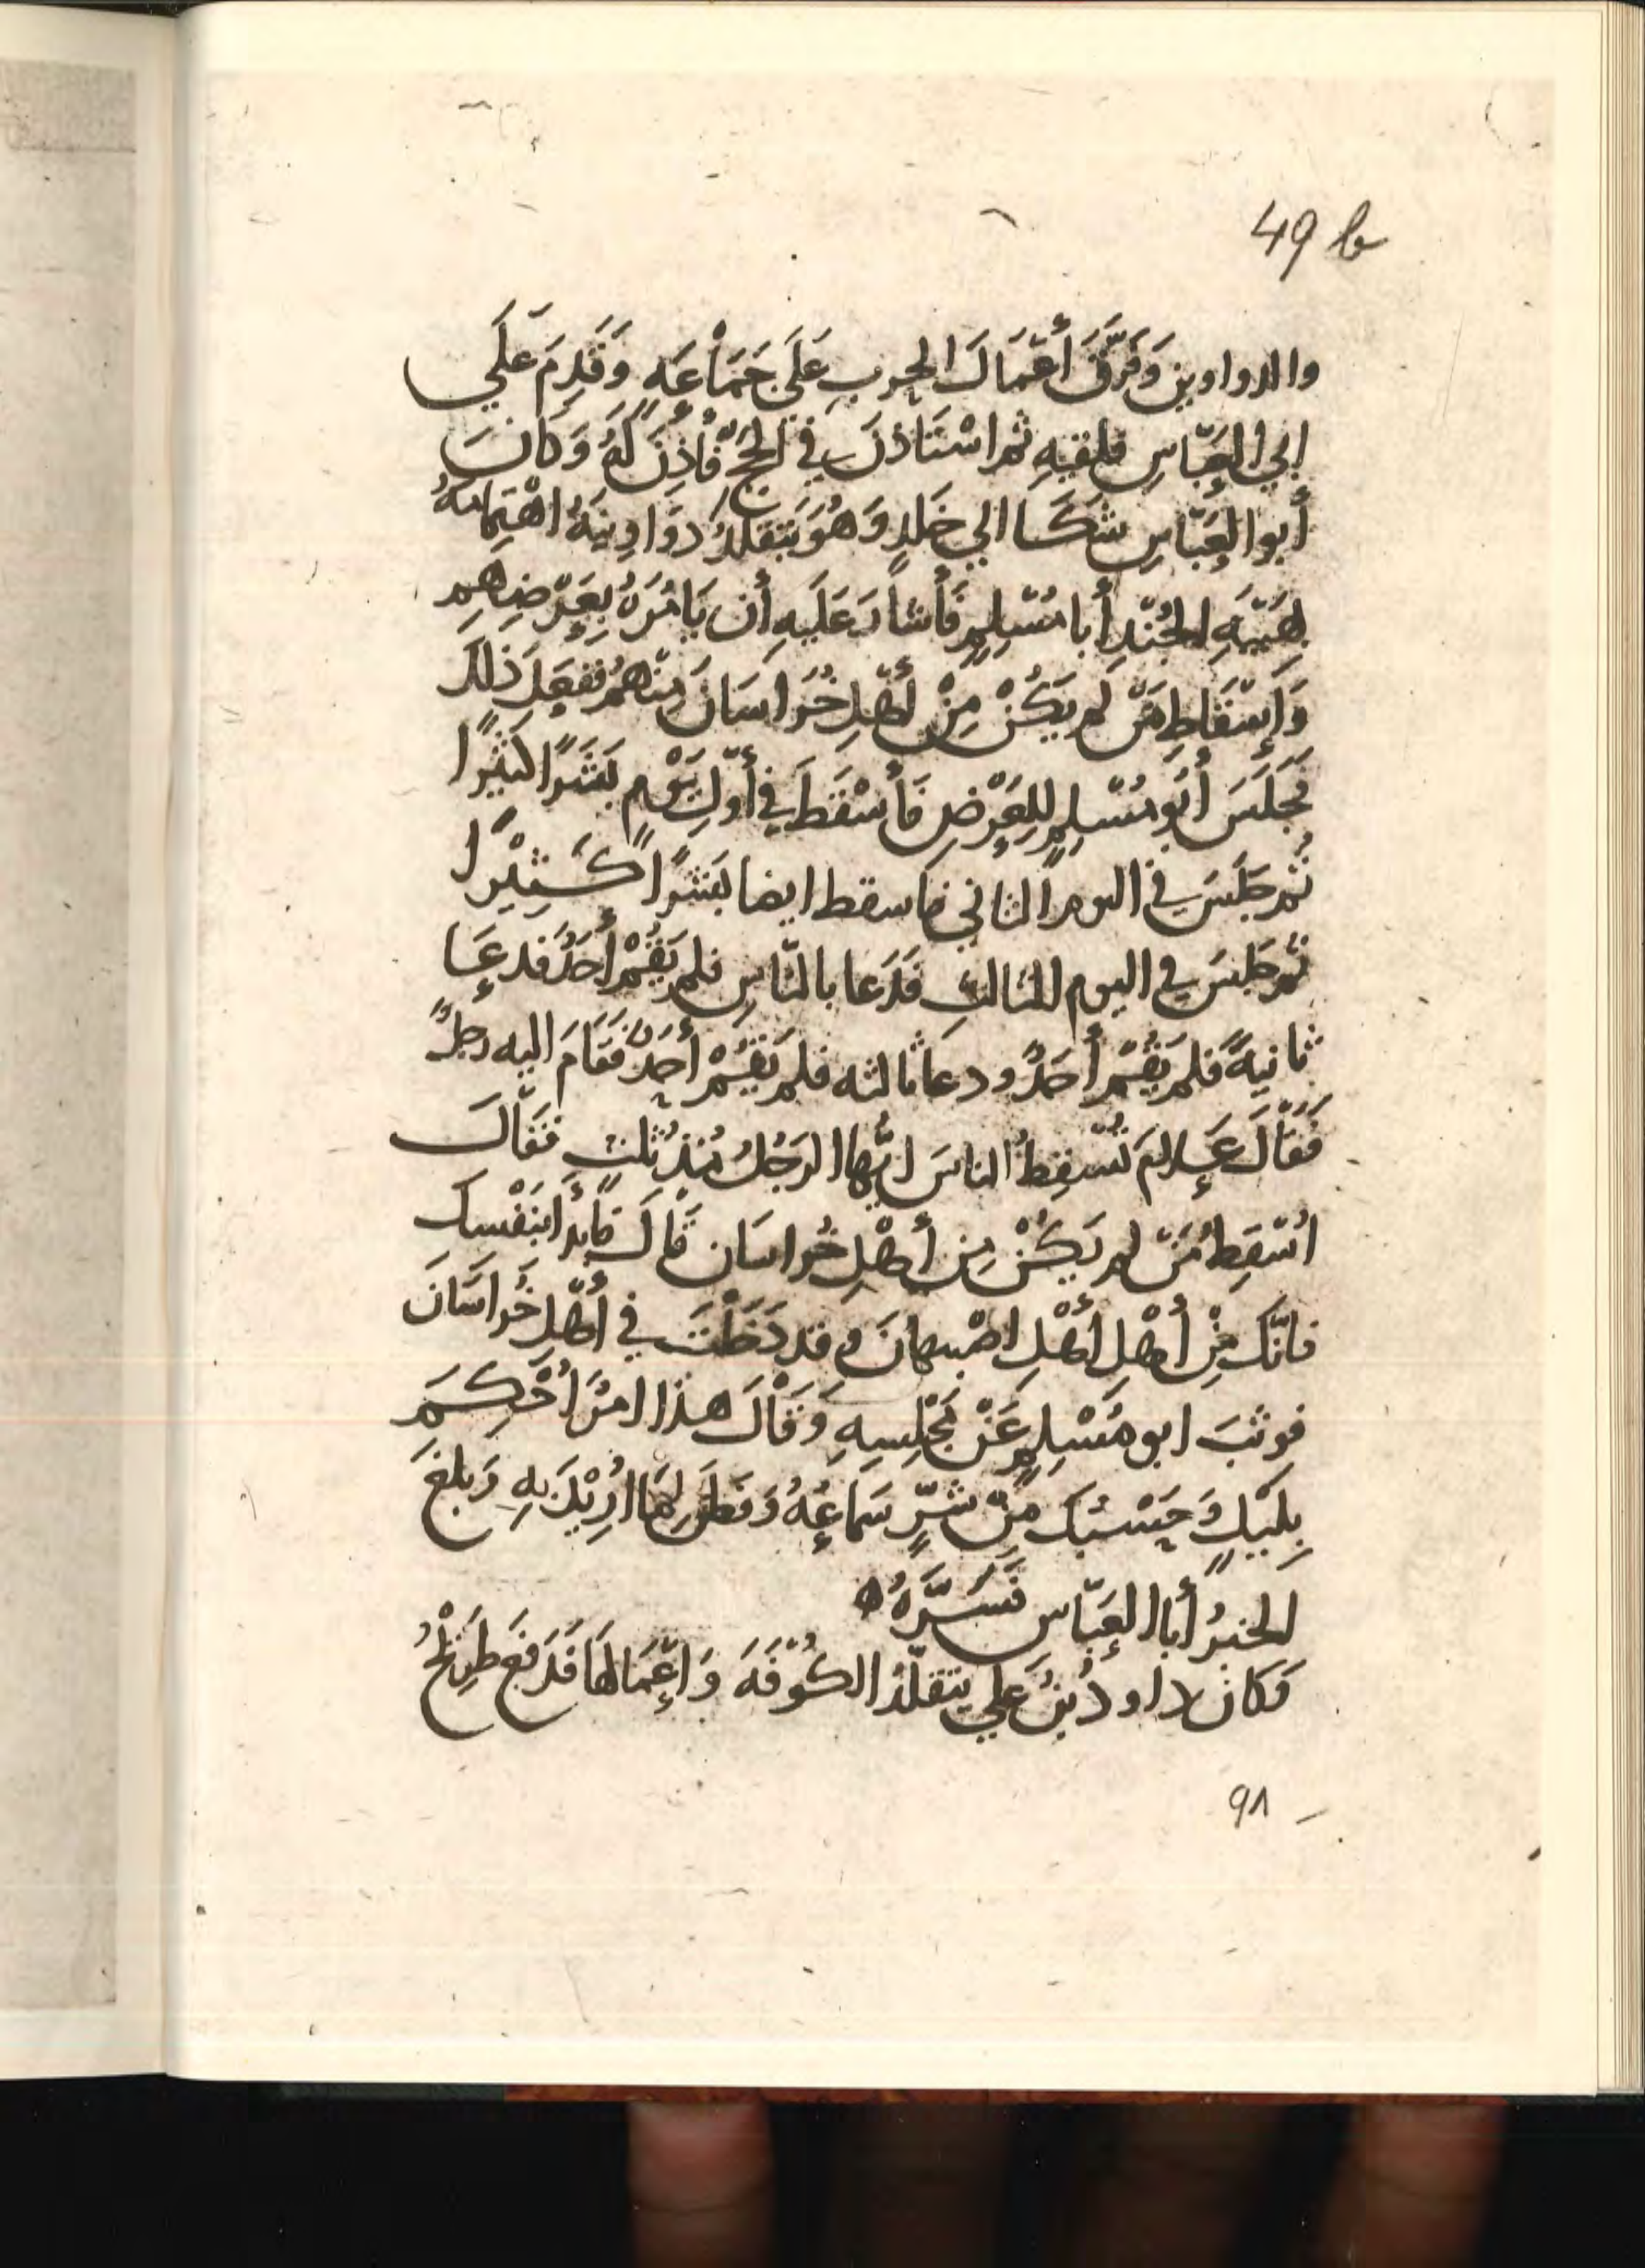 49 b
والدواوين وَفَرَّقَ أَعْمَالَ الحرب عَلَى جَمَاْعَهٍ وَقَدِمَ عَلَي
ابي العَبّاسِ فلقيهِ ثم اسْتَاذنَ في الحجّ فأُذِنَ لَهُ وَكانَ
أبوا العَبّاسِ شكَا الي خلدٍ وَهُوَ يَتقلدُ دوَاوِينَهُ
بهَيْبَهِ الجُنْدِ أبا مُسْلِمٍ فَأشاْرَ عَلَيهِ أن يَامُرَهُ بِعَرْضِهِم
وَإسْقَاطِ مَنْ لم يَكُنْ مِنْ أهْلِ خُرَاسَانَ مِنْهُمْ ففعَلَ ذلكَ
فجَلَسَ أبُو مُسْلِمٍ لِلعَرْضِ فَأسْقَطَ في أوّلِ يَوْمٍ بَشَرًا كثيْرًا
ثُم جَلَسَ في اليوم الثاني فاسقط ايضا بَشَرًا كَثِيْرًا
ثم جَلسَ في اليوم الثالثِ فَدَعا بالنّاسِ فلم يَقُمْ أحَدٌ فدعَا
ثانيةً فلم يَقُمْ أحَدٌ ودعا ثالثه فلم يَقُمْ أحَدٌ فقَامَ اليه رجلٌ
فَقَاْلَ عَلامَ تُسْقِطُ الناسَ ايُّها الرَجُلُ مُنذ ثلثٍ فَقَاْلَ
اُسْقِطُ مَنْ لم يَكُنْ مِن أهْلِ خُراسَان قاْلَ فابْدأ بِنَفْسِكَ
فانّكَ مِنْ أهْلِ أهْلِ اصْبهانَ وقد دَخَلْتَ في أهْلِ خُراسَانَ
فوثبَ ابو مُسْلِمٍ عَنْ مَجْلِسِهِ وَقَاْلَ هذا امرٌ أُحْكِمَ
بِليْلٍ وَحَسْبُك مِنْ شَرٍّ سَماعُهُ وَفَطَنَ لِمَا اُرِيْدَ بِهِ وَبلغَ
الخبرُ أبا العَبّاسِ فَسَرَّهُ ه
وَكان داودُ بْنُ عَلِي يتقلّدُ الكُوْفَهَ وَاعْمَالهَا فَدَفعَ
91